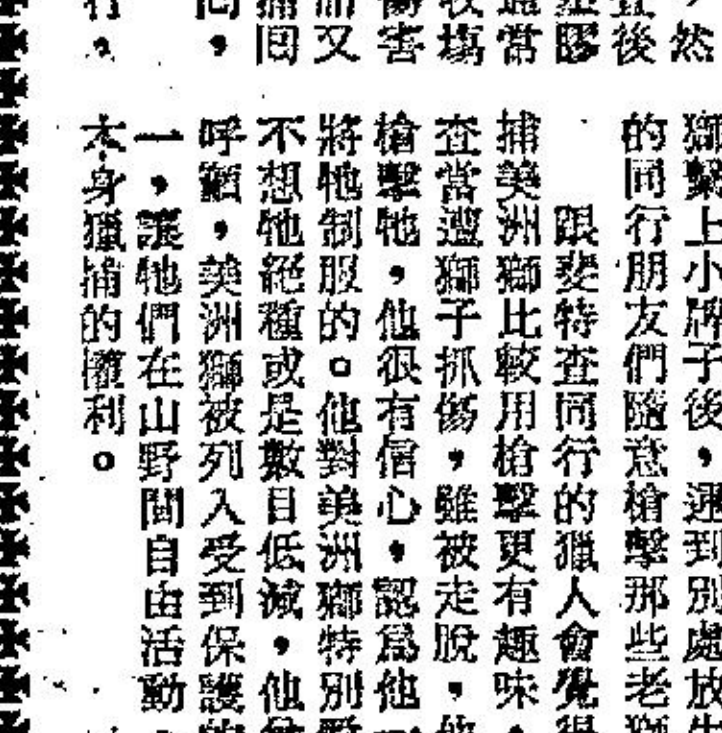 然
後
常
場
害
又
回
，
獅繫上小牌子後，運到別處放
的同行朋友們隨意槍擊那些老獅
跟斐特查同行的獵人會覺得
捕美洲獅比較用槍擊更有趣味，
查當遇獅子抓傷，雖被走脫，他
槍擊牠，他很有信心，認爲他
將牠制服的。他對美洲獅特別愛
不想牠絕種或是數目低減，他
呼籲，美洲獅被列入受到保護的
一，讓牠們在山野間自由活動，
本身獵捕的權利。